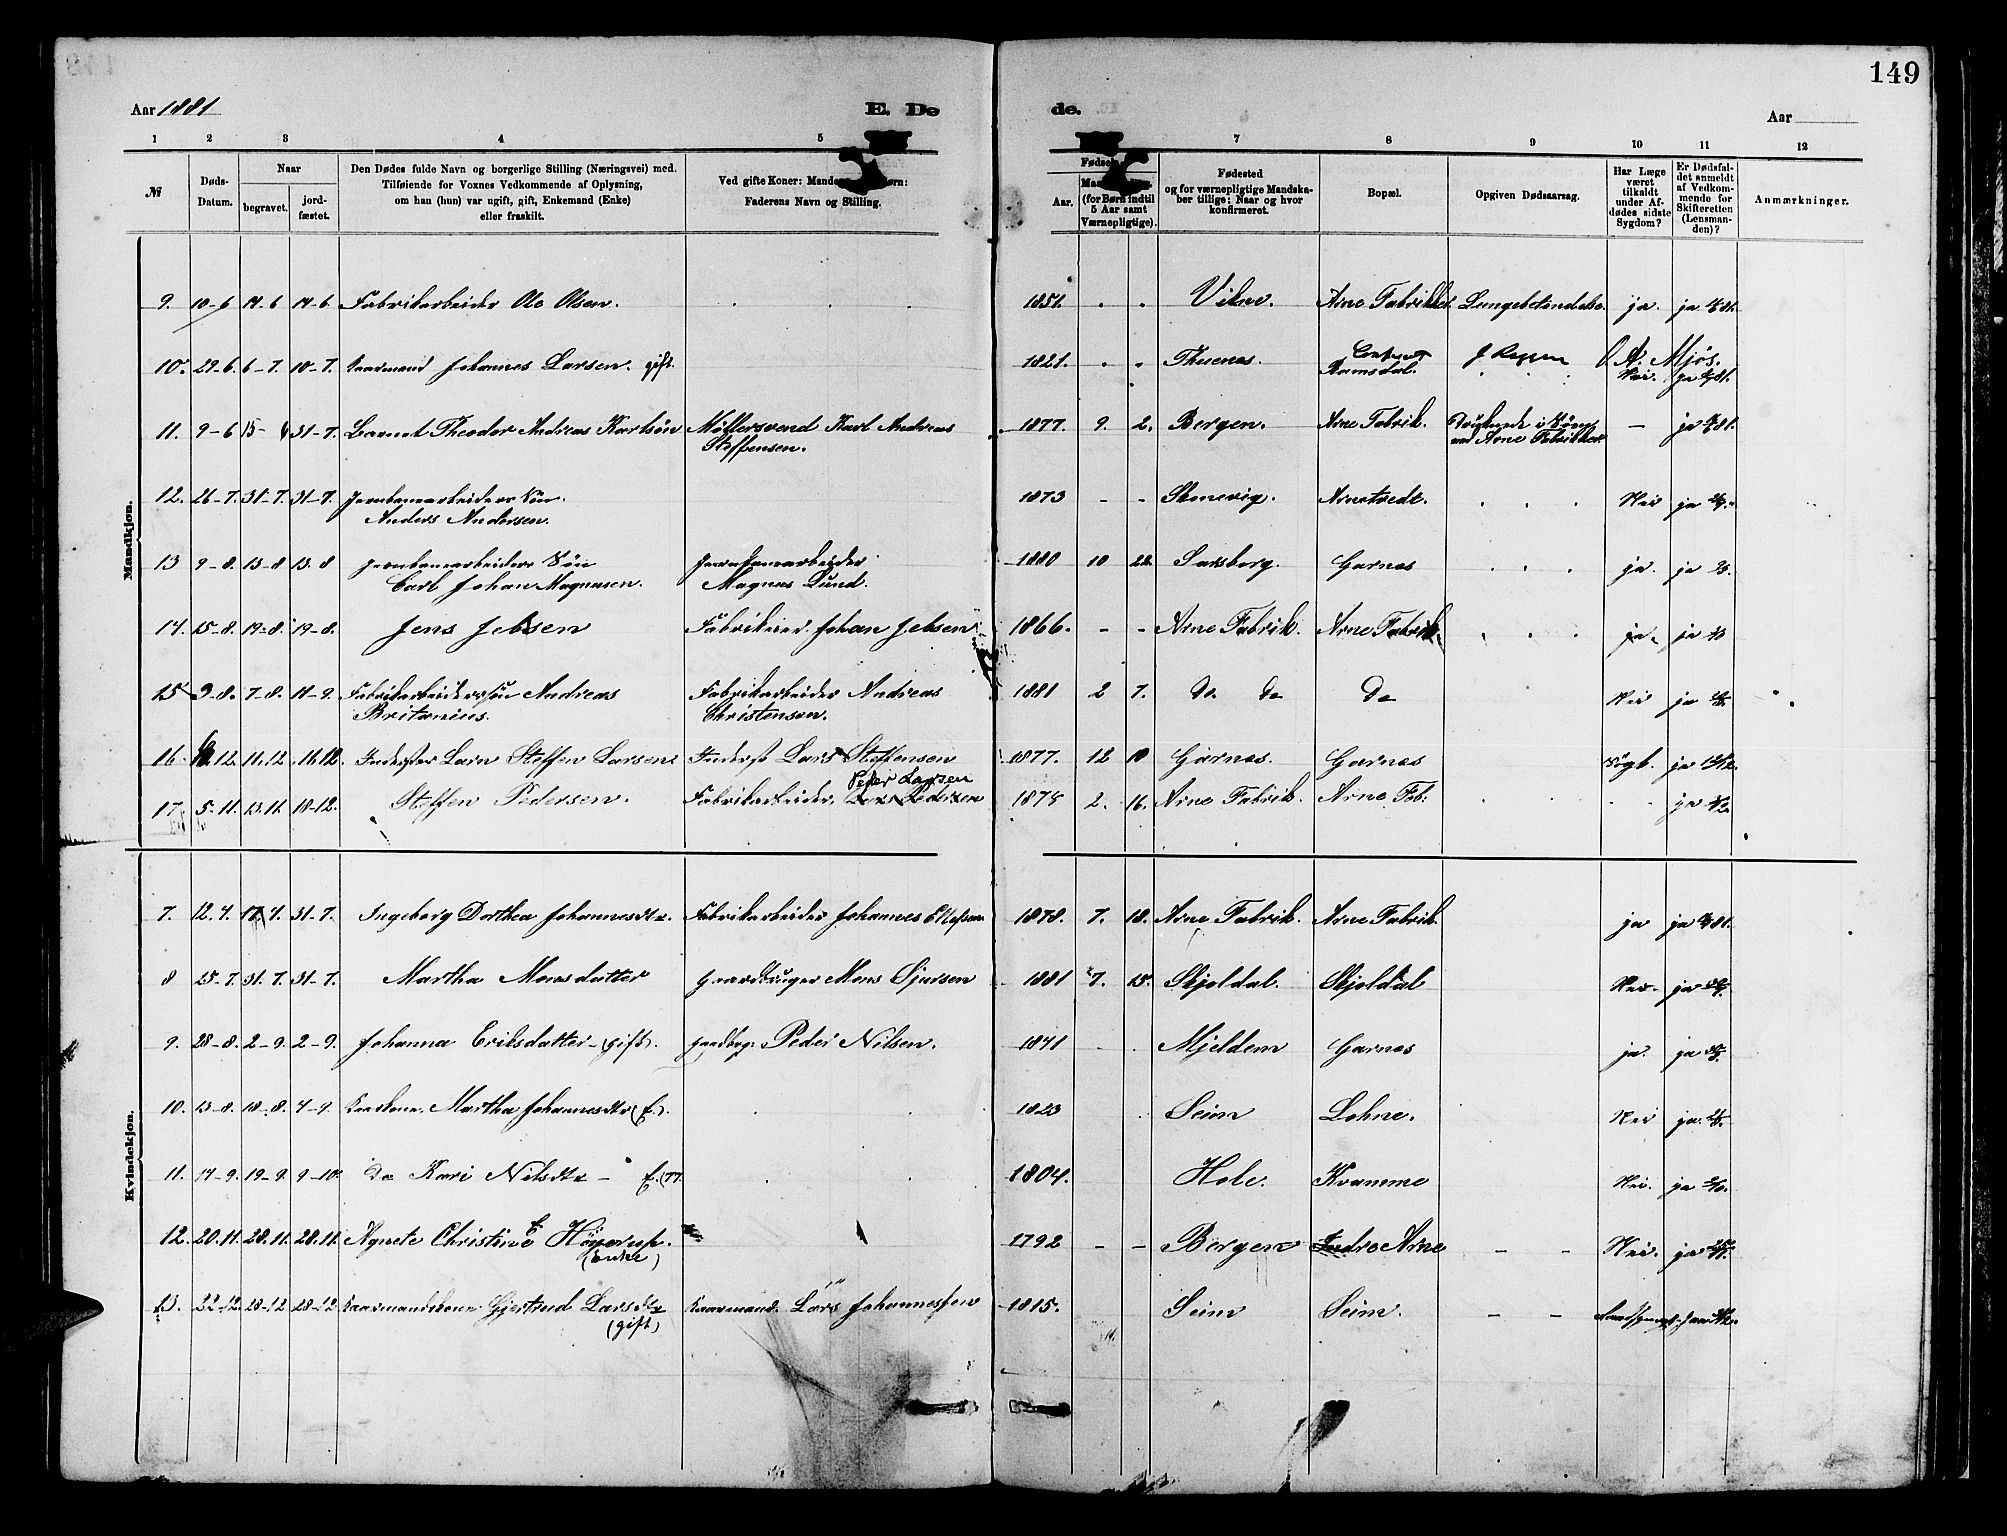 149
Aar 1881
E. De
de.
Aar
1 2 3 4 5 7 8 9 10 11 12
№
Døds-Datum.
Naar
begravet.
jordfæstet.
Den Dødes fulde Navn og borgerlige Stilling (Næringsvei) med.
Tilføiende for Voxnes Vedkommende af Oplysning,
om han (hun) var ugift, gift, Enkemand (Enke)
eller fraskilt.
Ved gifte Koner:
Faderens Navn og Stilling.
Aar.
(for Børn indtil
5 Aar samt
Værnepligtige).
Fødested
og for værnepligtige Mandska-
ber tillige: Naar og hvor
konfirmeret.
Bopæl.
Opgiven Dødsaarsag.
Har Læge
været
tilkaldt
under Af-
dødes sidste
Sygdom?
Er Dødsfal-
det anmeldt
af Vedkom-
mende for
Skifteretten
(Lensman-
den)?
Anmærkninger.
Mandkjøn.
9. 10-6 14-6 14-6. Fabrikarbeider Ole Olsen. 1851. Arne Fabrikker. Lungebetændelse. ja. ja
10. 29-6. 6-7. 10-7. Kaarmand Johannes Larsen. gift. 1821. Thuenes. Ramsdal. A. Mjøs. Nei. ja
11. 9-6 15- 31-7. Barnet Theodor Andreas Karlsøn Møllersvend Karl Andreas 1877. 9. 2. Bergen. Arne Fabrik. Druknede i — ja
Steffensen. ved Arne Fabrikker
12. 26-7. 31-7. 31-7. Jernbanearbeiders Søn. 1873 - - Arnetvedt. Nei ja
Anders Andersen.
13 9-8. 13-8 13.8 Jernbanearbeiders Søn Jernbanearbeider 1880 10 22. Sarsborg. Garnes ja. ja
Carl Johan Magnusen. Magnus Lund.
14. 15-8. 19-8. 19-8. Jens Jebsen Fabrikeier. Johan Jebsen 1866. - - Arne Fabrik. Arne Fabrik. ja. ja
15 3-8. 7-8. 11-9. Fabrikarbeiderssøn Andreas Fabrikarbeider Andreas 1881 2 7. do do do Nei ja
Britanius. Christensen.
16 12. 11.12 11.12. Inderster Barn Steffen Larsen. Inderst Lars Steffensen 1877. 12 10 Garnes. Garnes ja
Peder Larsen
17. 5-11. 13.11. 18-12. Steffen Pedersen. Fabrikarbeider. 2. 16. Arne Fabrik. Arne Fab: ja
Kvindekjøn.
7. 12.4. 17.4. 31-7. Ingeborg Dorthea Johannesdtr. Fabrikarbeider Johannes 1878. 7. 18. Arne Fabrik. Arne Fabrik. ja ja
8 25-7. 31.7. 31-7. Martha Monsdatter Gaardbruger Mons Sjursen 1881 7. 15. Skjoldal. Skjoldal Nei. ja
9. 28-8. 2-9. 2-9. Johanna Eriksdatter - (gift). Gaardbrg: Peder Nilsen. 1841 Mjeldem Garnes ja. ja
10. 13-8. 18-8. 4-9. Kaarkone. Martha Johannesdtr (E.). 1823 Seim Lohne. Nei ja
11. 14-9. 19-9. 9-10. do Kari Nilsdtr - E. (77. 1804. Hole. Kvamme Nei. ja
12. 20.11. 28.11. 28.11. Agnete Christine Høyerup. 1792 - - Bergen Indre Arne - - Nei. ja
(Enke)
13. 22-12. 28-12 28-12 Kaarmandskone Gjertrud Larsdtr Kaarmand. Lars Johannessen 1815. Seim Seim. - -
(gift)